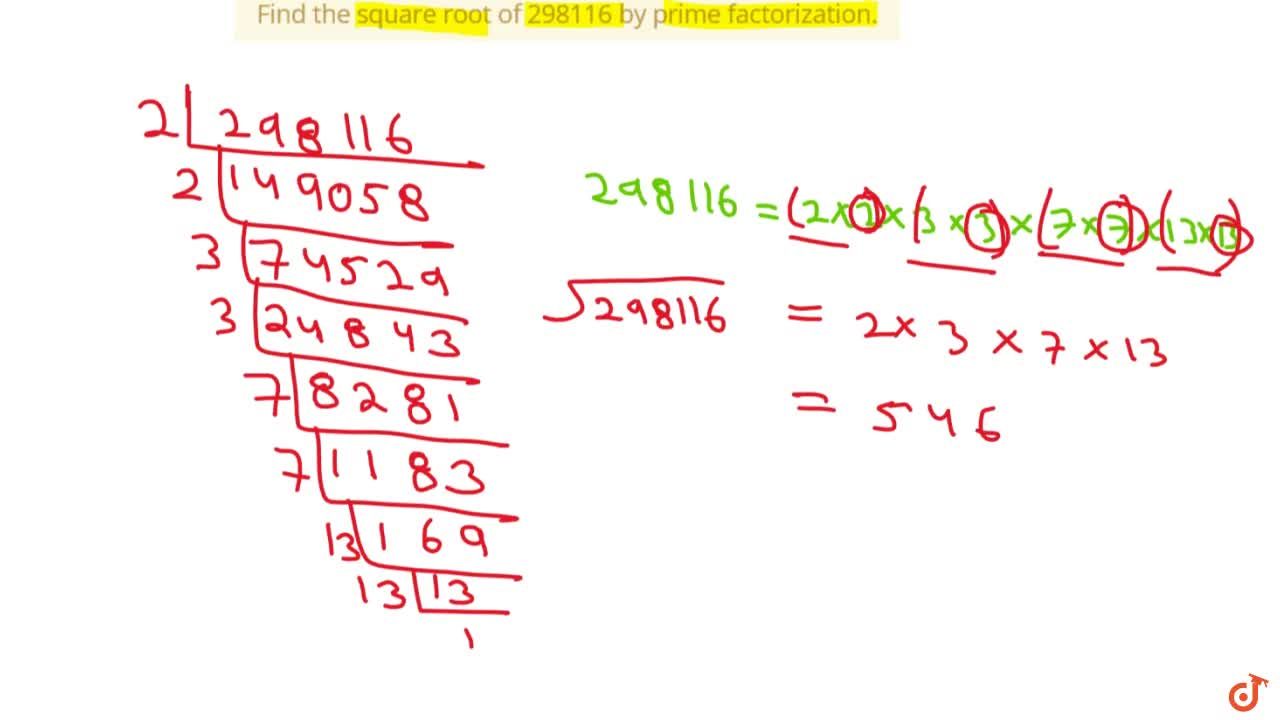 Find the square root of 298116 by prime factorization.
2 | 298116
2 | 149058
3 | 74529
3 | 24843
7 | 8281
7 | 1183
13 | 169
13 | 13
1
298116 = (2 × 2) × (3 × 3) × (7 × 7) × (13 × 13)
√298116 = 2 × 3 × 7 × 13
= 546